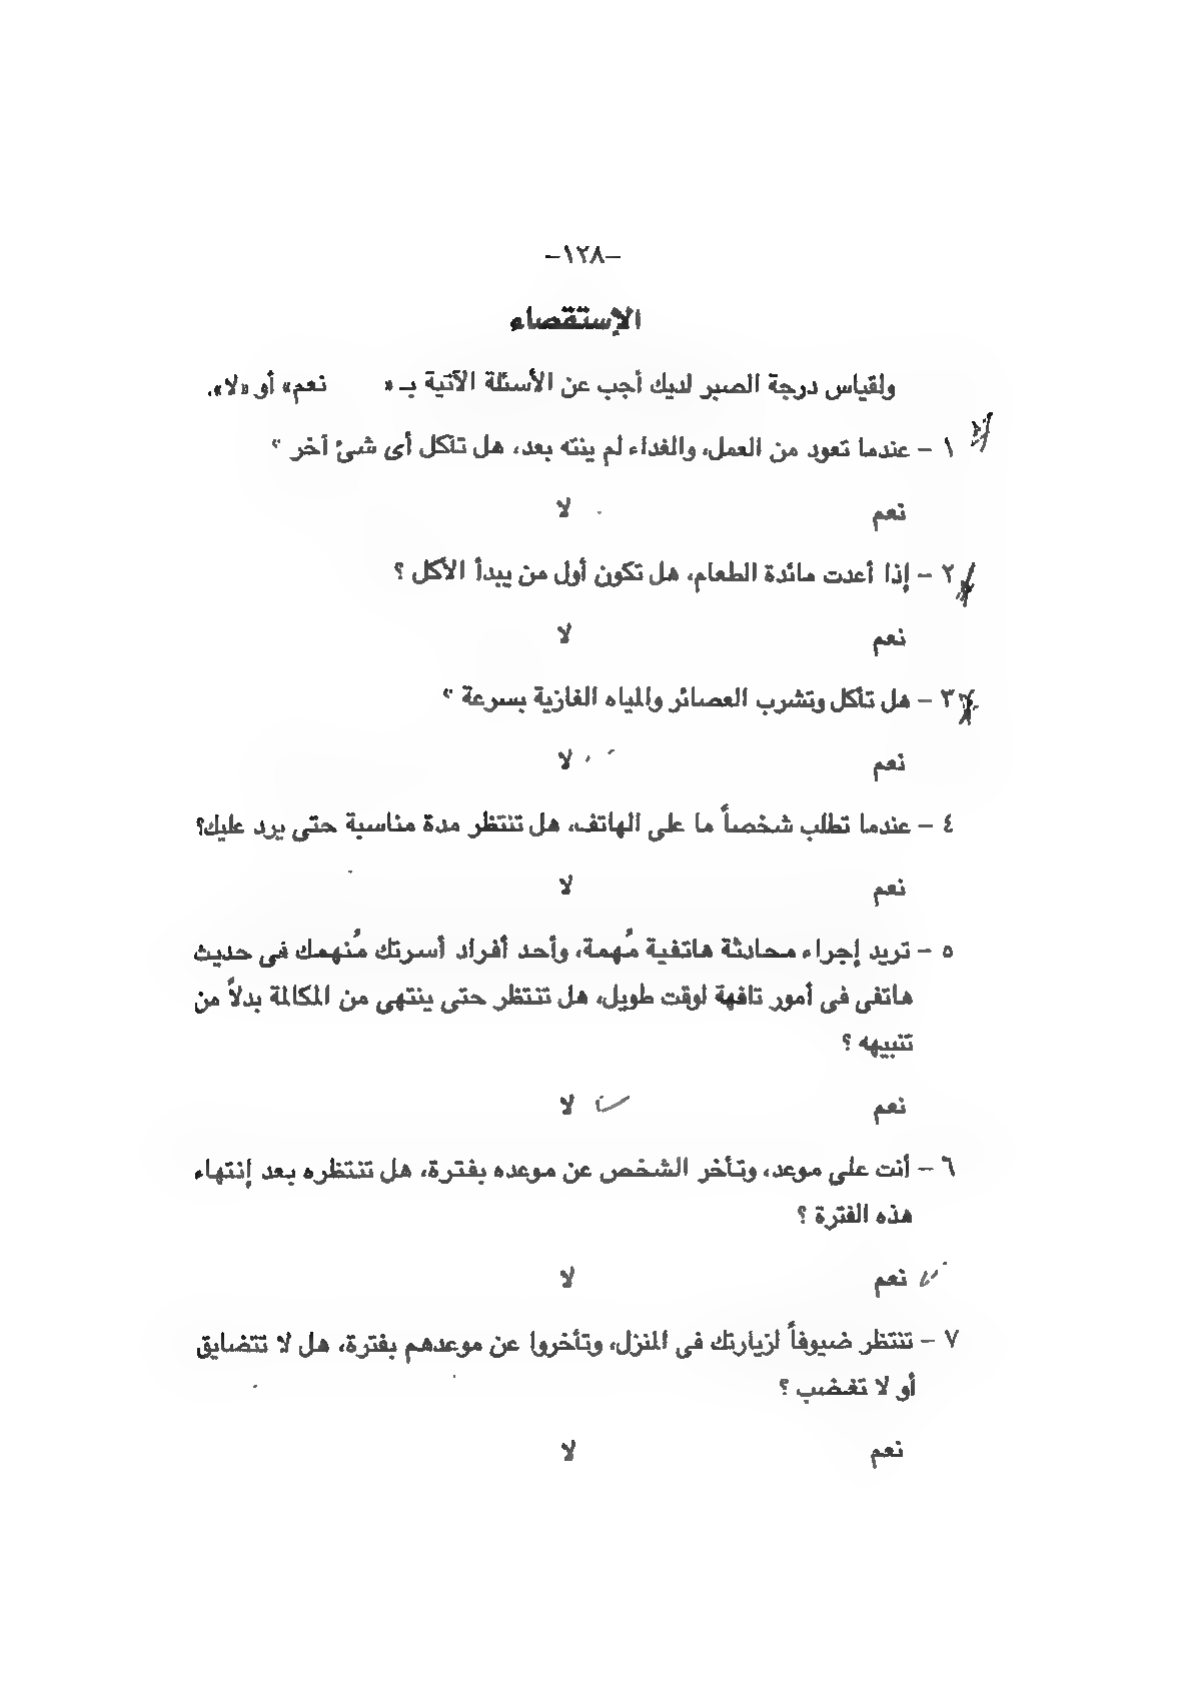 –١٢٨–
الإستقصاء
ولقياس درجة الصبر لديك أجب عن الأسئلة الآتية بـ « نعم» أو «لا».
١ – عندما تعود من العمل، والغداء لم ينته بعد، هل تأكل أى شئ آخر ؟
نعم لا
٢ – إذا أعدت مائدة الطعام، هل تكون أول من يبدأ الأكل ؟
نعم لا
٣ – هل تأكل وتشرب العصائر والمياه الغازية بسرعة ؟
نعم لا
٤ – عندما تطلب شخصاً ما على الهاتف، هل تنتظر مدة مناسبة حتى يرد عليك؟
نعم لا
٥ – تريد إجراء محادثة هاتفية مُهمة، وأحد أفراد أسرتك مُنهمك فى حديث
هاتفى فى أمور تافهة لوقت طويل، هل تنتظر حتى ينتهى من المكالمة بدلاً من
تنبيهه ؟
نعم لا
٦ – أنت على موعد، وتأخر الشخص عن موعده بفترة، هل تنتظره بعد إنتهاء
هذه الفترة ؟
نعم لا
٧ – تنتظر ضيوفاً لزيارتك فى المنزل، وتأخروا عن موعدهم بفترة، هل لا تتضايق
أو لا تغضب ؟
نعم لا